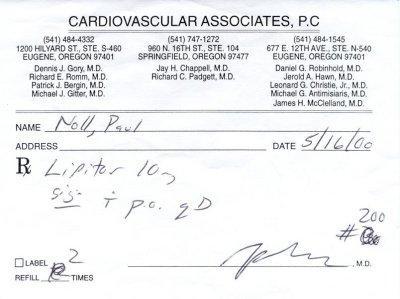 CARDIOVASCULAR ASSOCIATES, P.C
(541) 484-4332
1200 HILYARD ST., STE. S-460
EUGENE, OREGON 97401
Dennis J. Gory, M.D.
Richard E. Romm, M.D.
Patrick J. Bergin, M.D.
Michael J. Gitter, M.D.
(541) 747-1272
960 N. 16TH ST., STE. 104
SPRINGFIELD, OREGON 97477
Jay H. Chappell, M.D.
Richard C. Padgett, M.D.
(541) 484-1545
677 E. 12TH AVE., STE. N-540
EUGENE, OREGON 97401
Daniel G. Robinhold, M.D.
Jerold A. Hawn, M.D.
Leonard G. Christie, Jr., M.D.
Michael G. Antimisiaris, M.D.
James H. McClelland, M.D.
NAME Noll, Paul
ADDRESS DATE 5/16/00
℞ Lipitor 10
sig i p.o. qD
200
#
LABEL
REFILL 2 TIMES
, M.D.